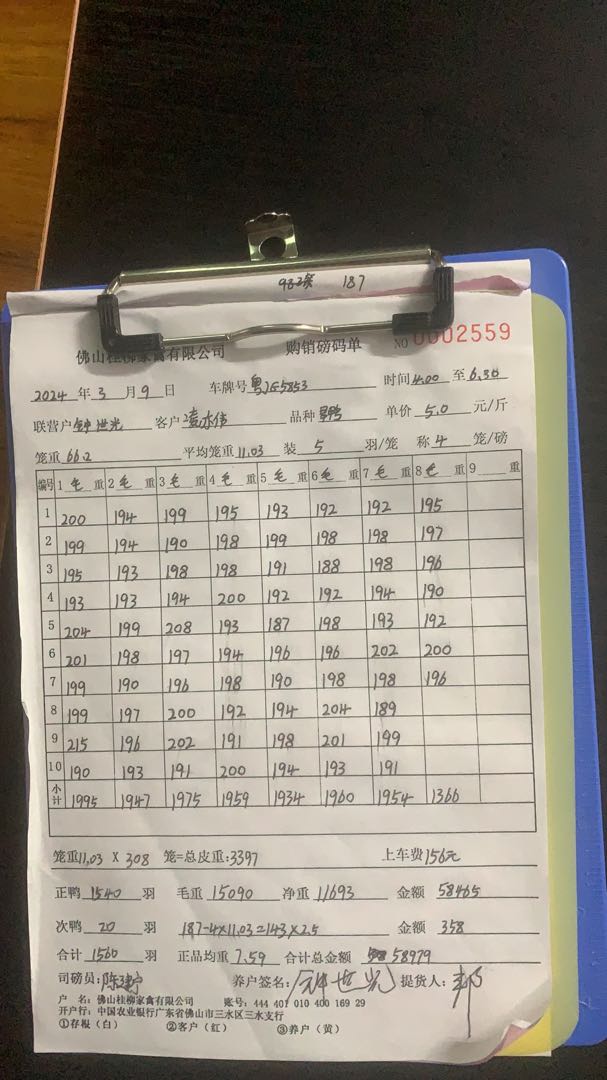 187
佛山桂柳家禽有限公司 购销磅码单 NO 0002559
2024 年 3 月 9 日 车牌号 粤 5853 时间 4.00 至 6.30
联营户 钟世光 客户 伟 品种 鸭 单价 5.0 元/斤
笼重 66.2 平均笼重 11.03 装 5 羽/笼 称 4 笼/磅
编号 1 毛 重 2 毛 重 3 毛 重 4 毛 重 5 毛 重 6 毛 重 7 毛 重 8 毛 重 9 重
1 200 194 199 195 193 192 192 195
2 199 194 190 198 199 198 198 197
3 195 193 198 198 191 188 198 196
4 193 193 194 200 192 192 194 190
5 204 199 208 193 187 198 193 192
6 201 198 197 194 196 196 202 200
7 199 190 196 198 190 198 198 196
8 199 197 200 192 194 204 189
9 215 196 202 191 198 201 199
10 190 193 191 200 194 193 191
小计 1995 1947 1975 1959 1934 1960 1954 1366
笼重 11.03 X 308 笼=总皮重: 3397 上车费 156元
正鸭 1540 羽 毛重 15090 净重 11693 金额 58465
次鸭 20 羽 187-4×11.03=143×2.5 金额 358
合计 1560 羽 正品均重 7.59 合计总金额 58979
司磅员: 陈建宁 养户签名: 钟世光 提货人: 邦
户 名: 佛山桂柳家禽有限公司 账号: 444 401 010 400 169 29
开户行: 中国农业银行广东省佛山市三水区三水支行
①存根（白） ②客户（红） ③养户（黄）